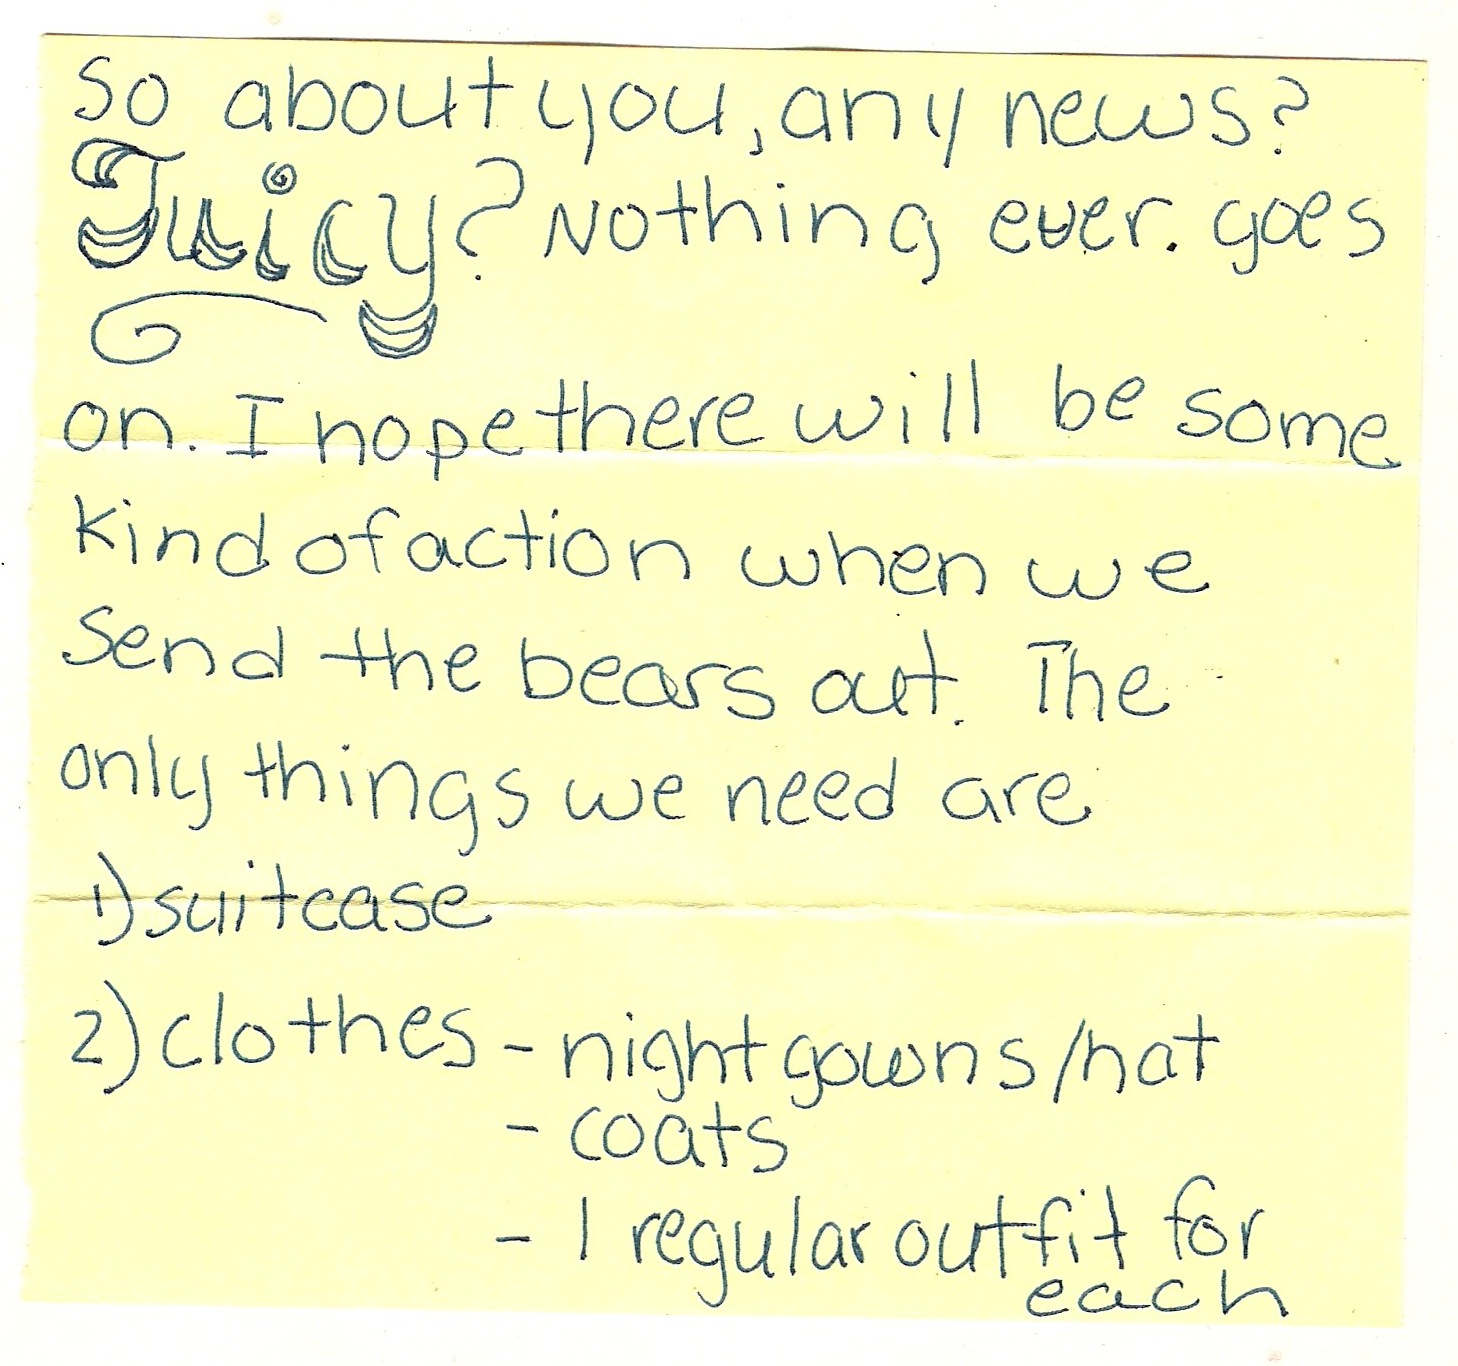 So about you, any news?
Juicy? Nothing ever. goes
on. I hope there will be some
kind of action when we
send the bears out. The
only things we need are
1) suitcase
2) clothes - night gowns/hat
- coats
- 1 regular outfit for
each